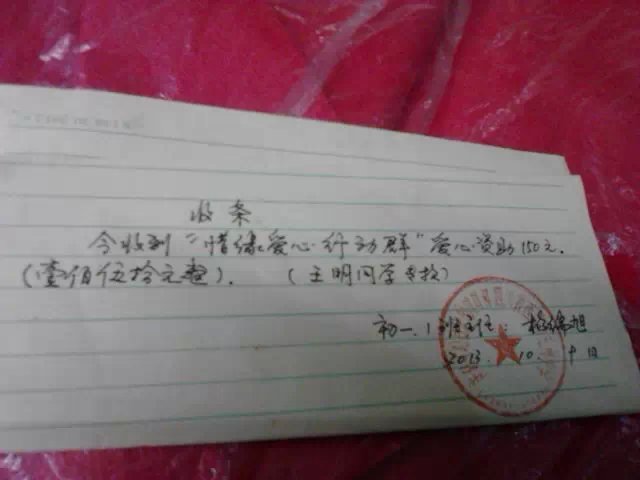 收条
今收到“惜缘爱心行动群”爱心资助150元.
(壹佰伍拾元整). (王明同学专款)
初一.1班主任:
2013.10.